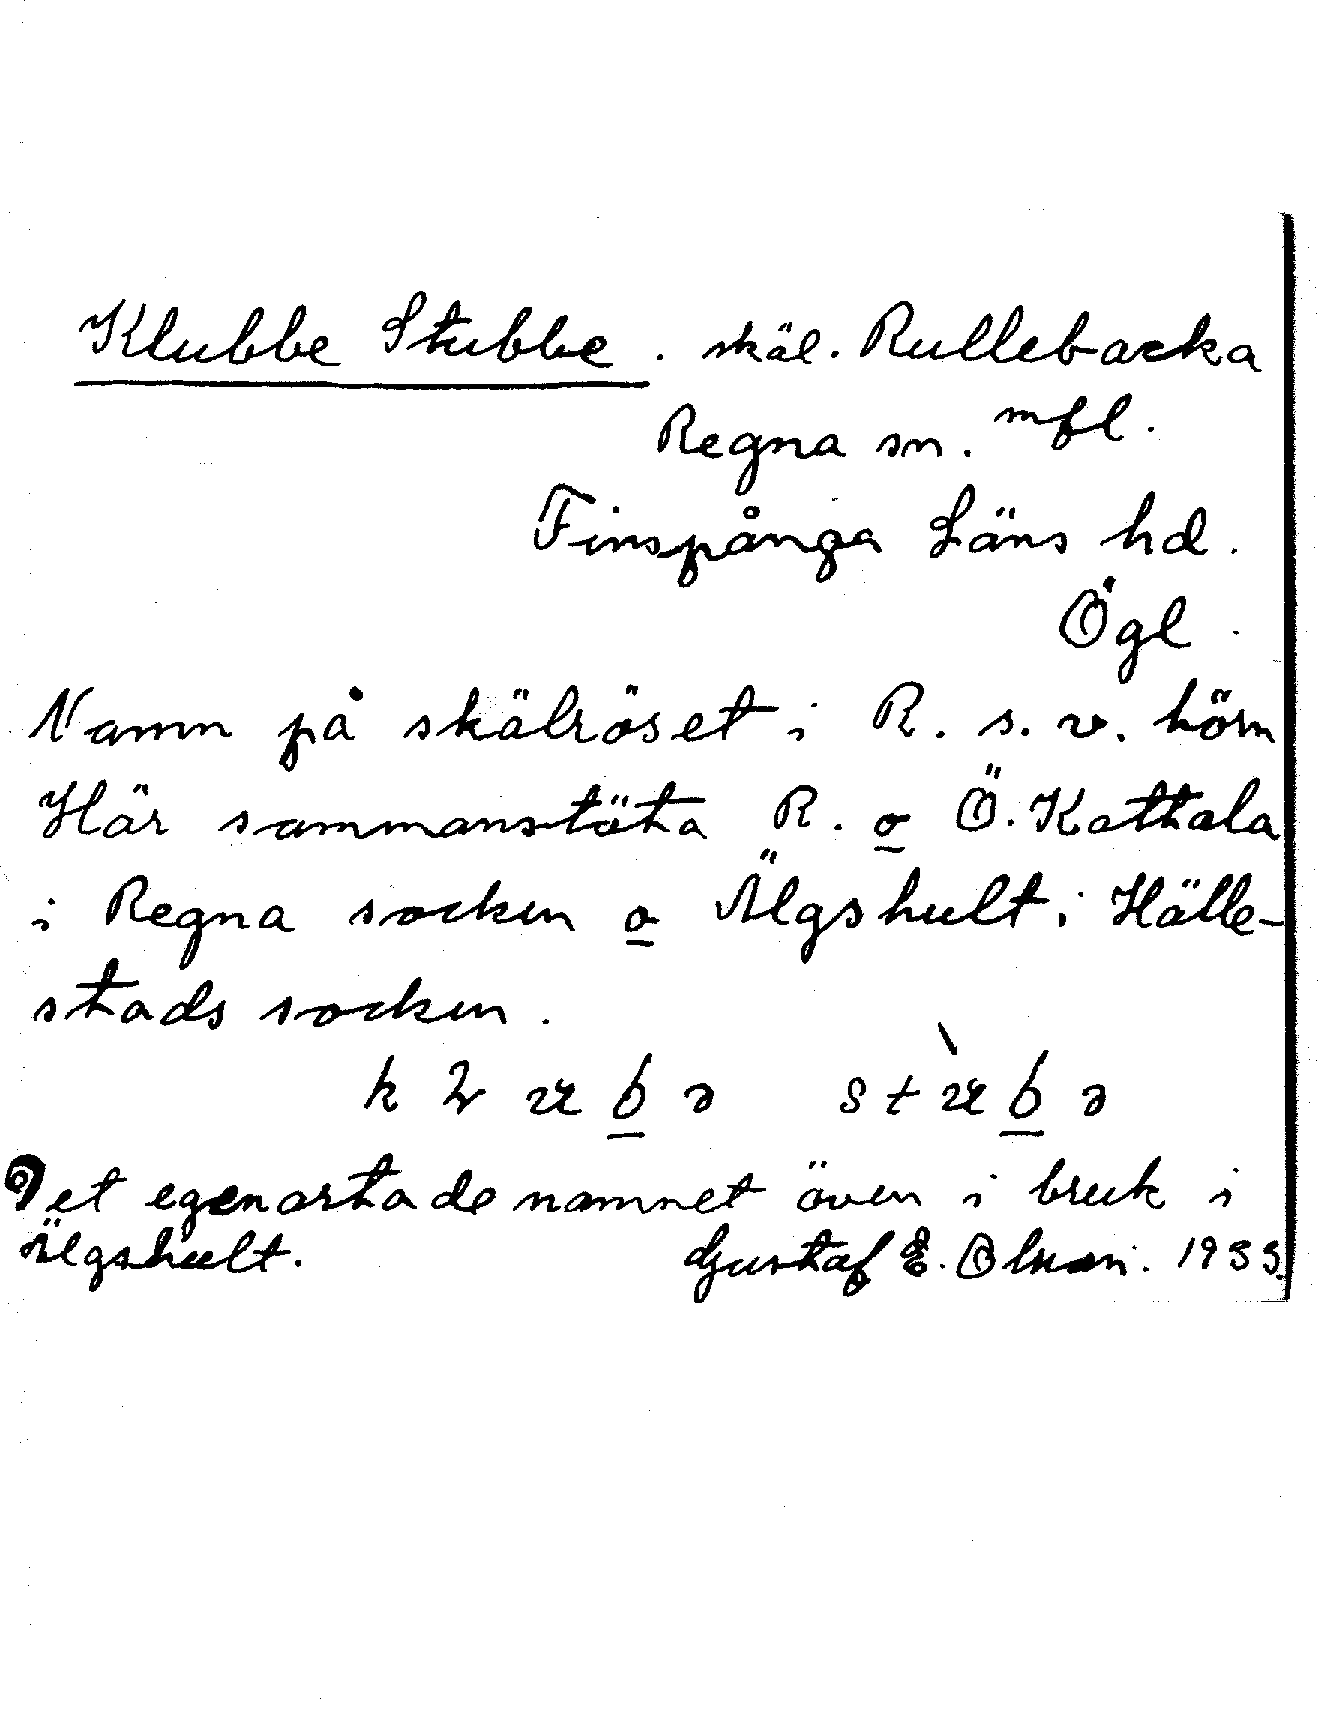 Klubbe Stubbe. skäl. Rullebacka
Regna sn. mfl.
Finspånga Läns hd.
Ögl.
Namn på skälröset i R. s. v. hörn
Här sammanstöta R. o Ö. Kattala
i Regna socken o Älgshult i Hälle-
stads socken.
Det egenartade namnet även i bruk i
Älgshult. Gustaf E. Olsson. 1933